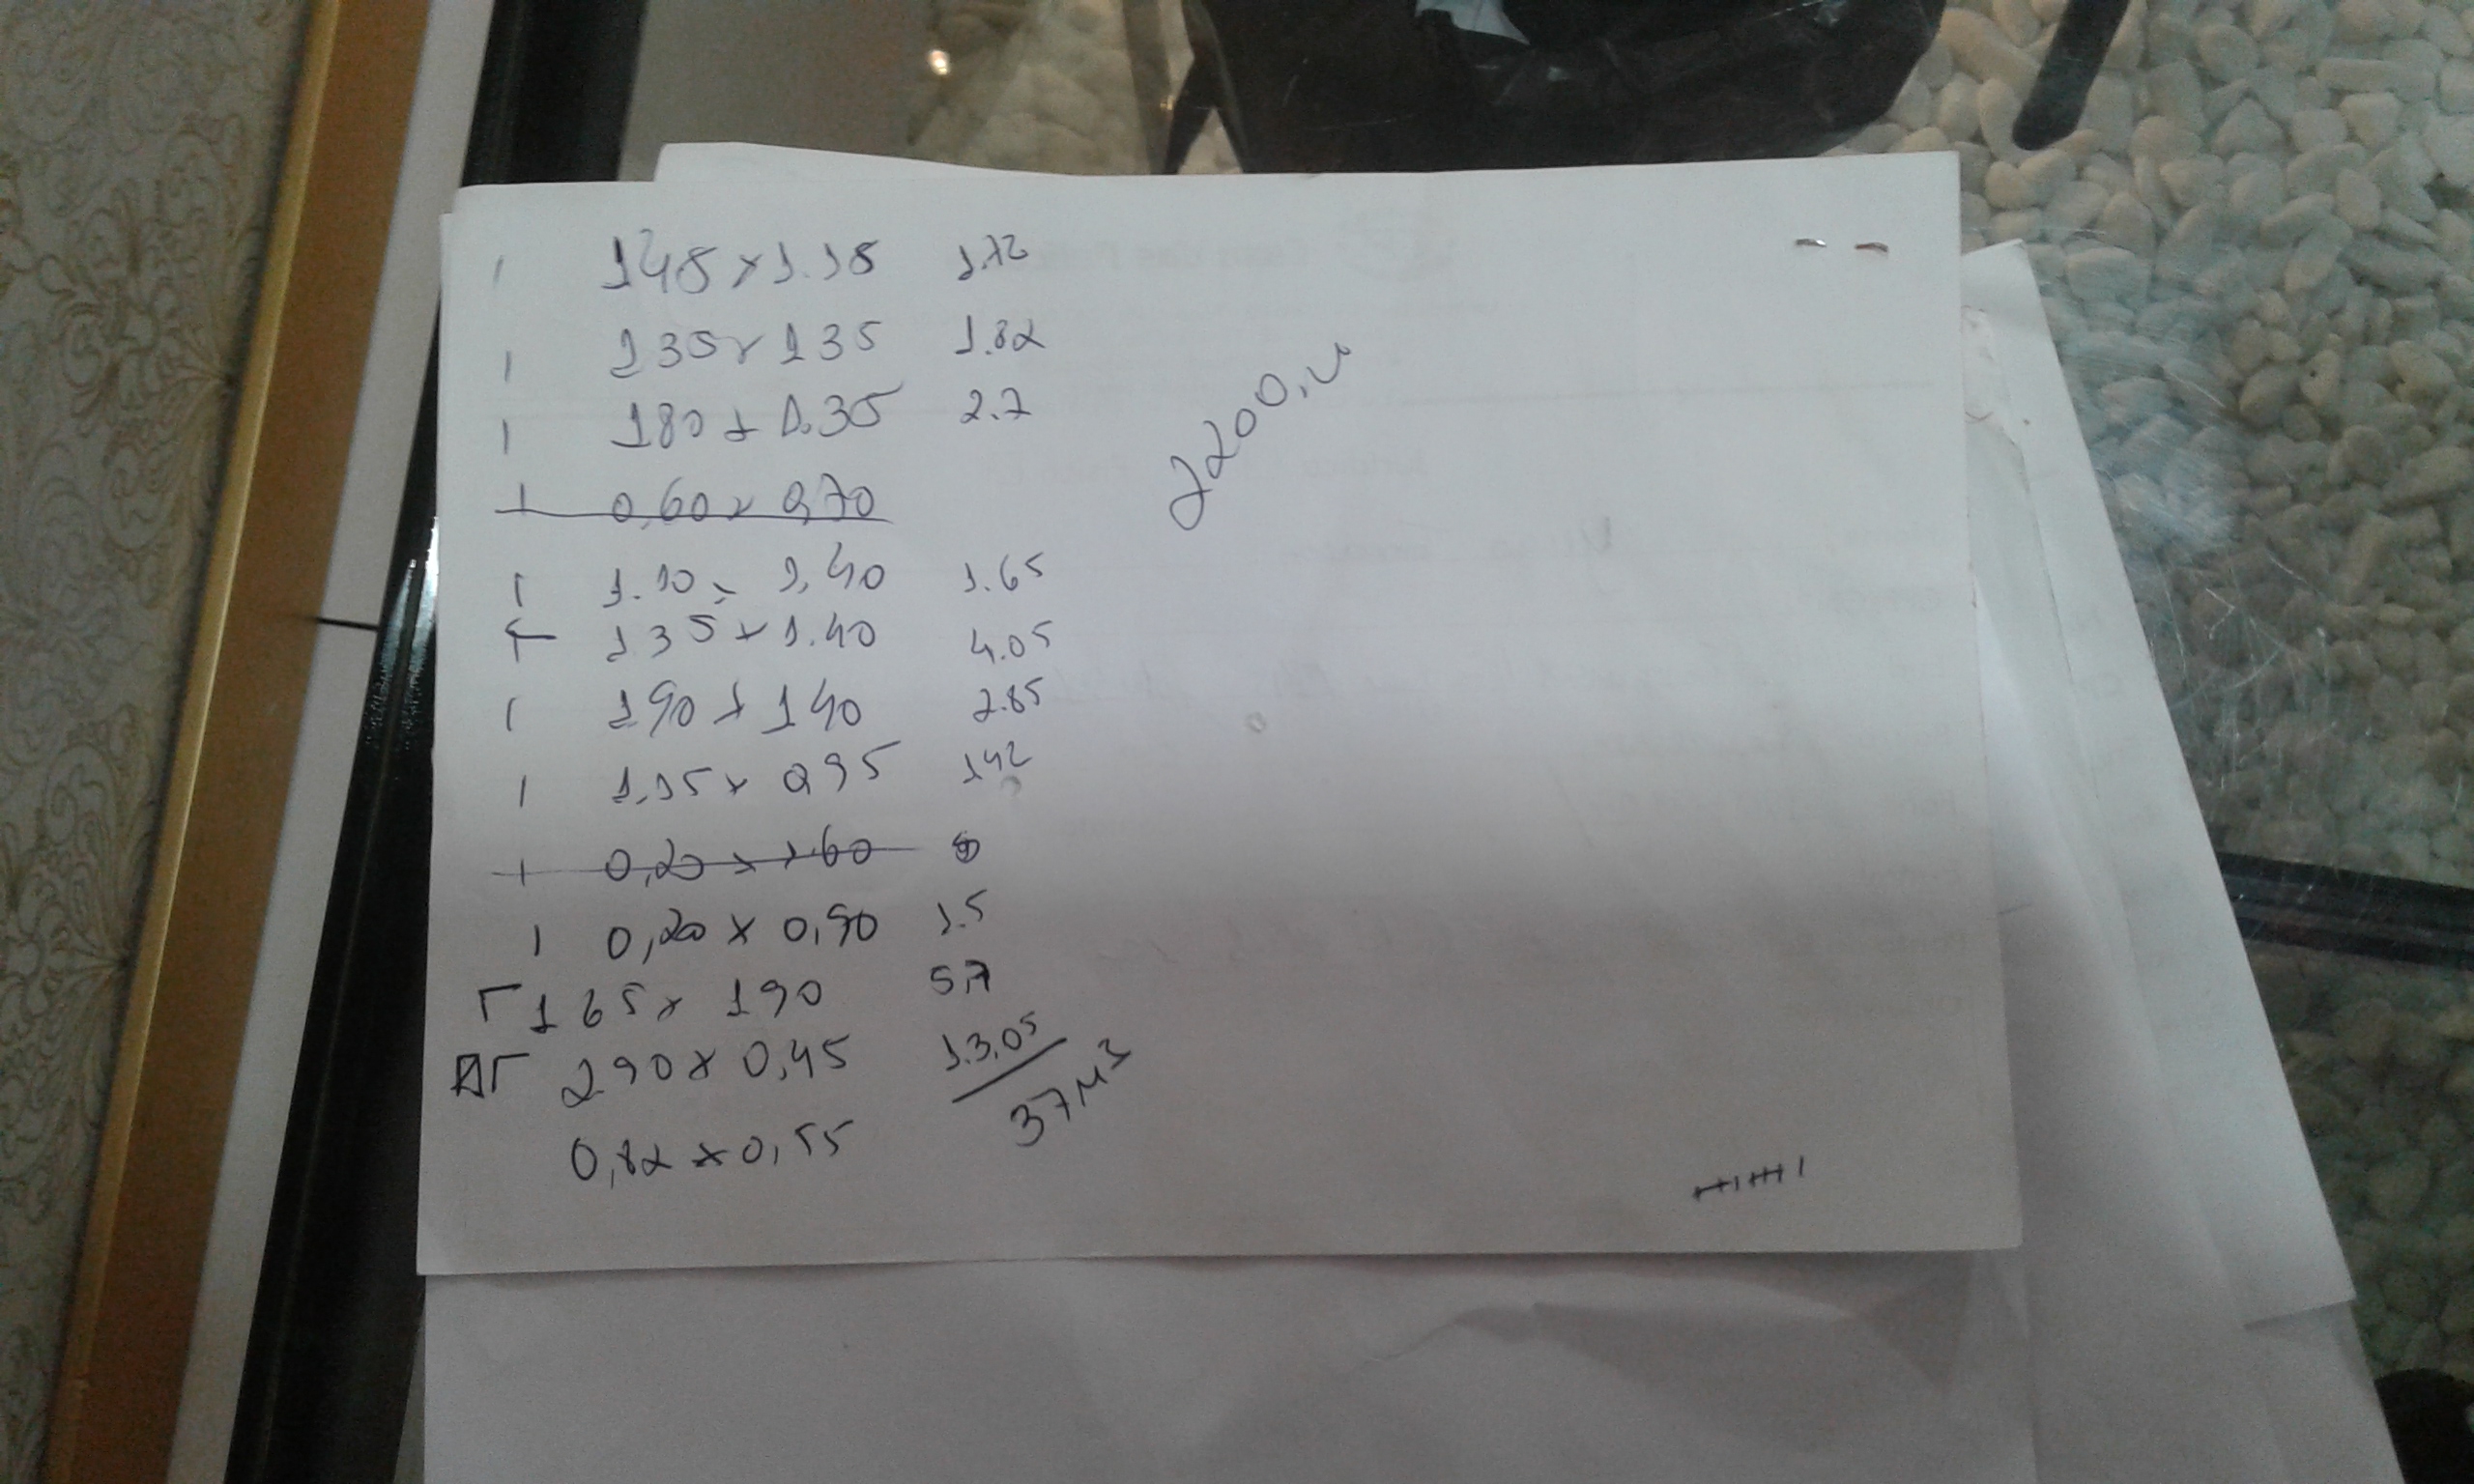 1 148 x 1.18 1.72
1 135 x 135 1.82
1 180 x 1.35 2.7
1 0,60 x 0,70
1 1.10 x 1,40 1.65
135 x 1.40 4.05
1 190 x 140 2.85
1 1.15 x 095 142
1 0,20 x 1.60
1 0,20 x 0,90 1.5
165 x 190 5,7
290 x 0,45 13.05
0,82 x 0,55 37M3
2200,